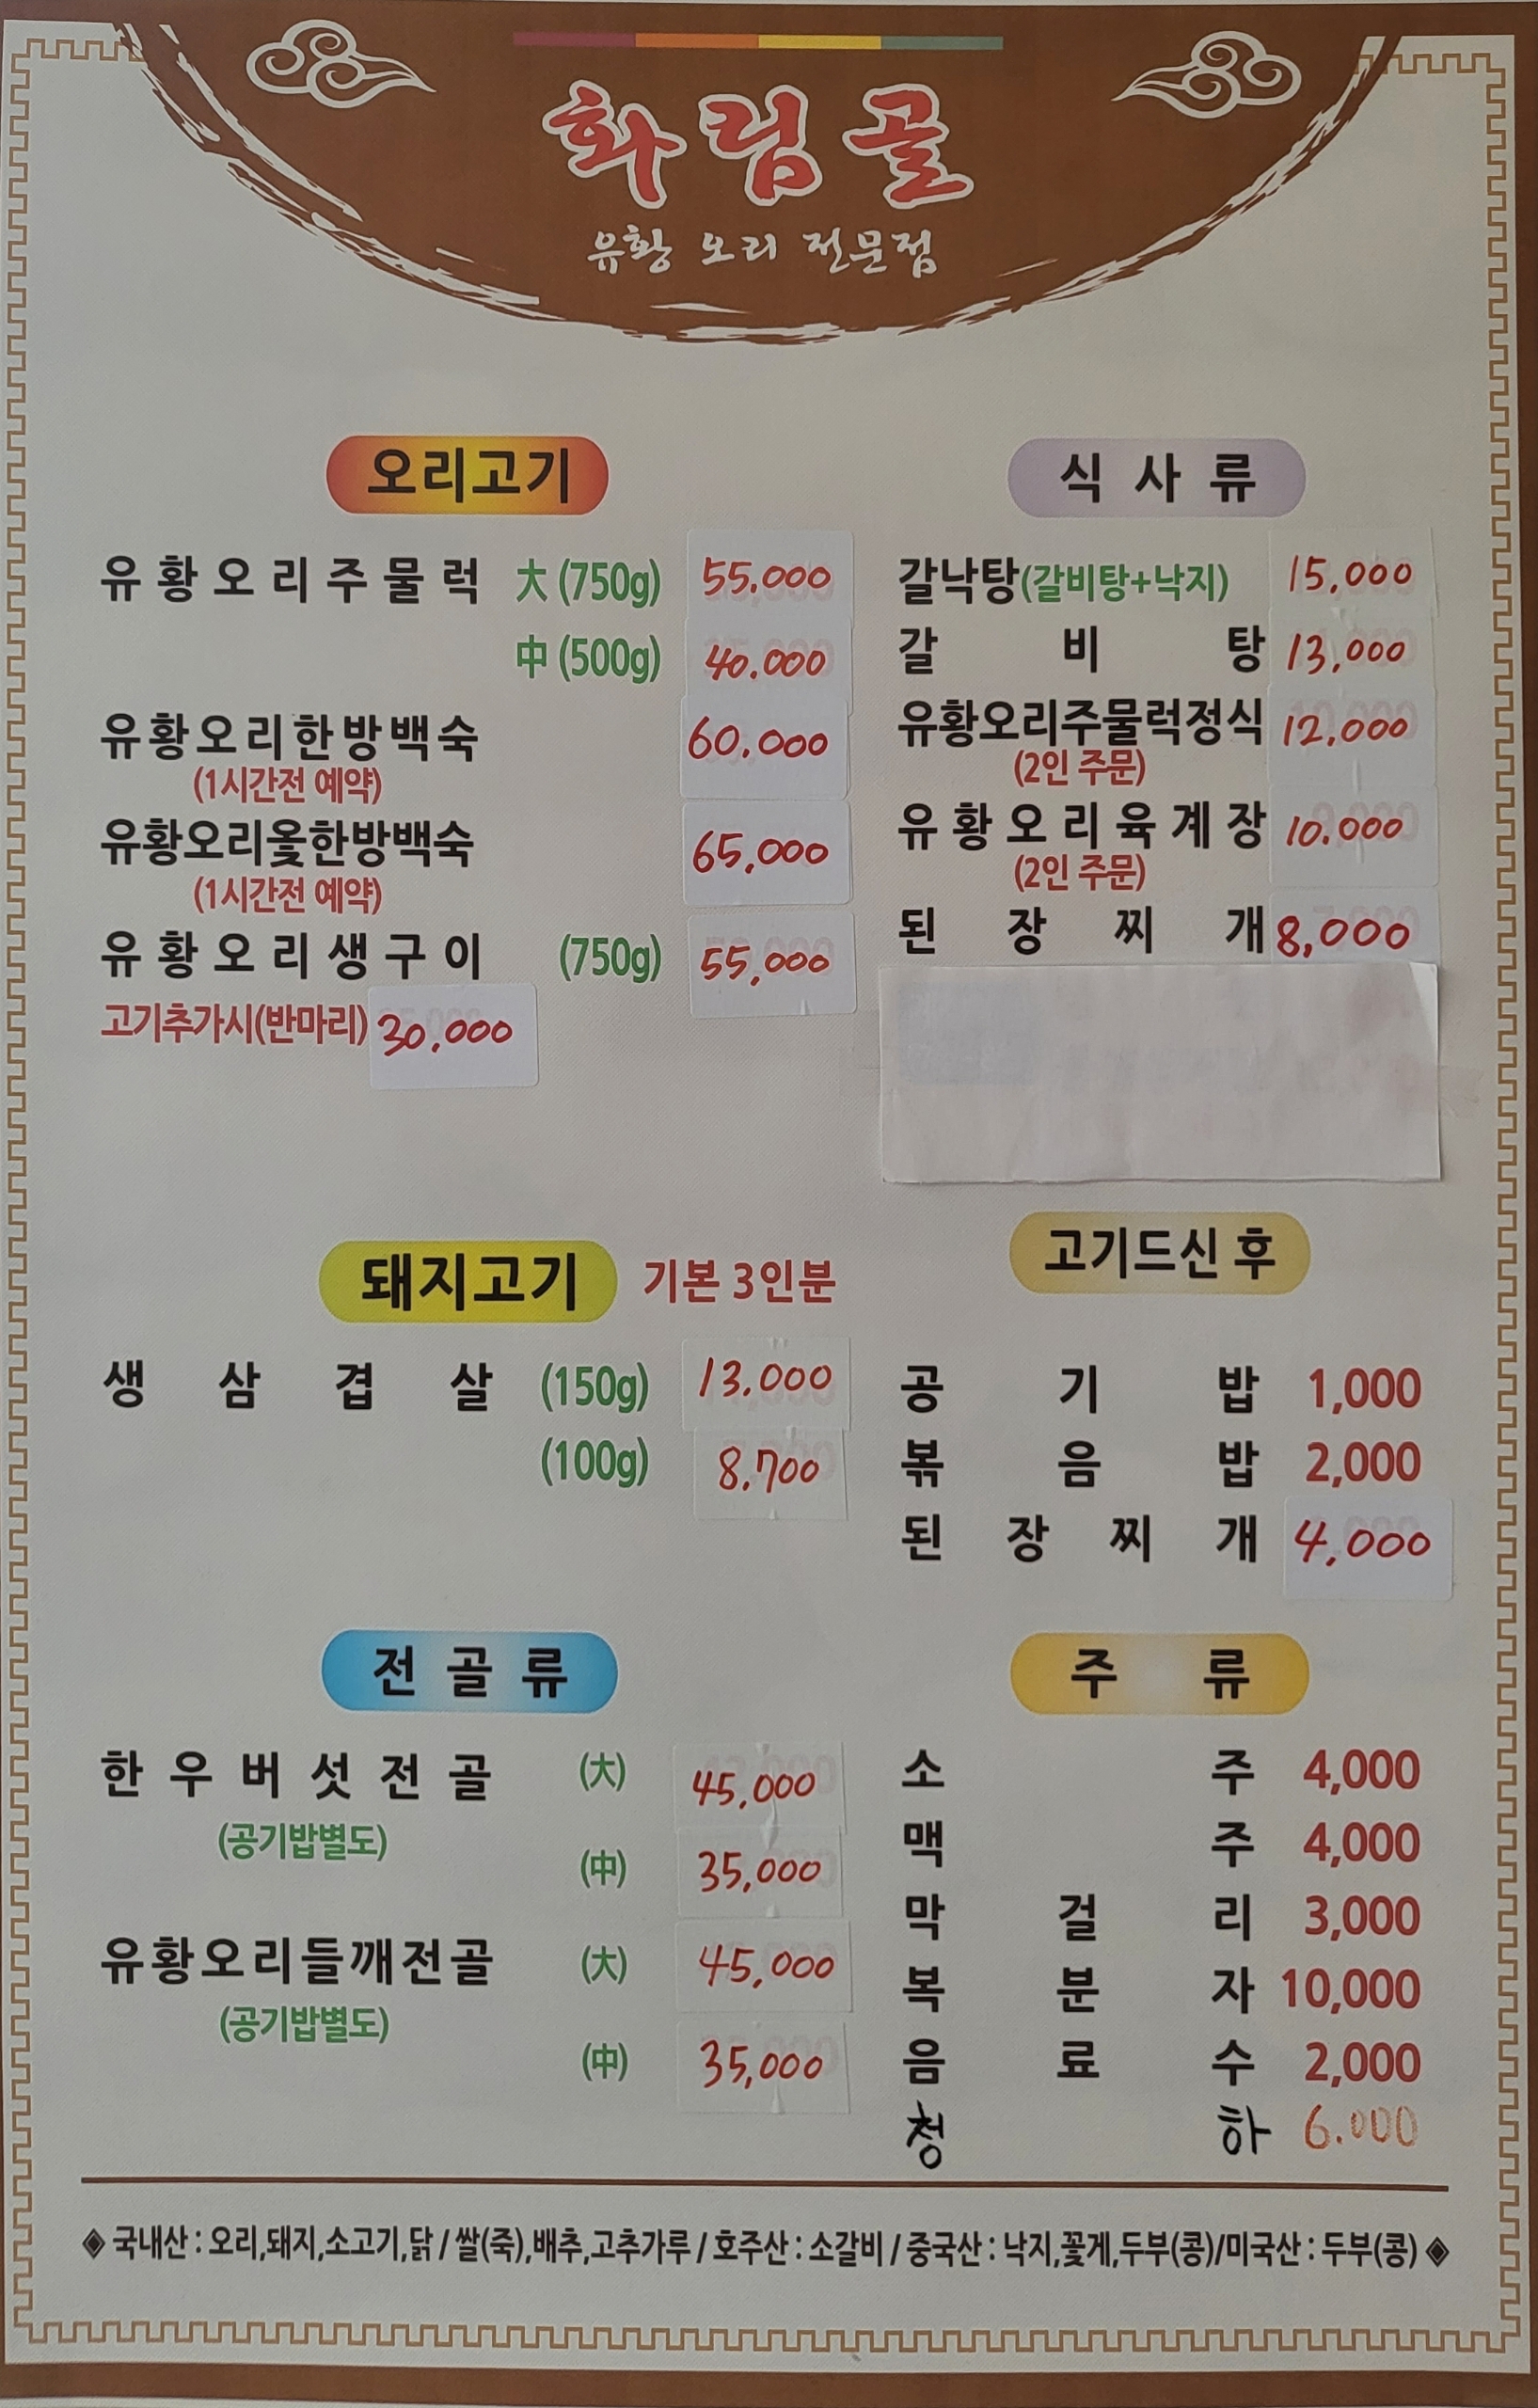 화림골
유황 오리 전문점
오리고기
유황오리주물럭 大 (750g) 55.000
中 (500g) 40.000
유황오리한방백숙 60.000
(1시간전 예약)
유황오리옻한방백숙 65,000
(1시간전 예약)
유황오리생구이 (750g) 55,000
고기추가시(반마리) 30,000
돼지고기 기본 3인분
생삼겹살 (150g) 13.000
(100g) 8.700
전골류
한우버섯전골 (大) 45,000
(공기밥별도)
(中) 35,000
유황오리들깨전골 (大) 45,000
(공기밥별도)
(中) 35,000
식사류
갈낙탕(갈비탕+낙지) 15,000
갈비탕 13,000
유황오리주물럭정식 12,000
(2인 주문)
유황오리육계장 10.000
(2인 주문)
된장찌개 8,000
고기드신 후
공기밥 1,000
볶음밥 2,000
된장찌개 4,000
주류
소주 4,000
맥주 4,000
막걸리 3,000
복분자 10,000
음료수 2,000
청하 6.000
◈ 국내산 : 오리,돼지,소고기,닭 / 쌀(죽),배추,고추가루 / 호주산 : 소갈비 / 중국산 : 낙지,꽃게,두부(콩)/미국산 : 두부(콩) ◈